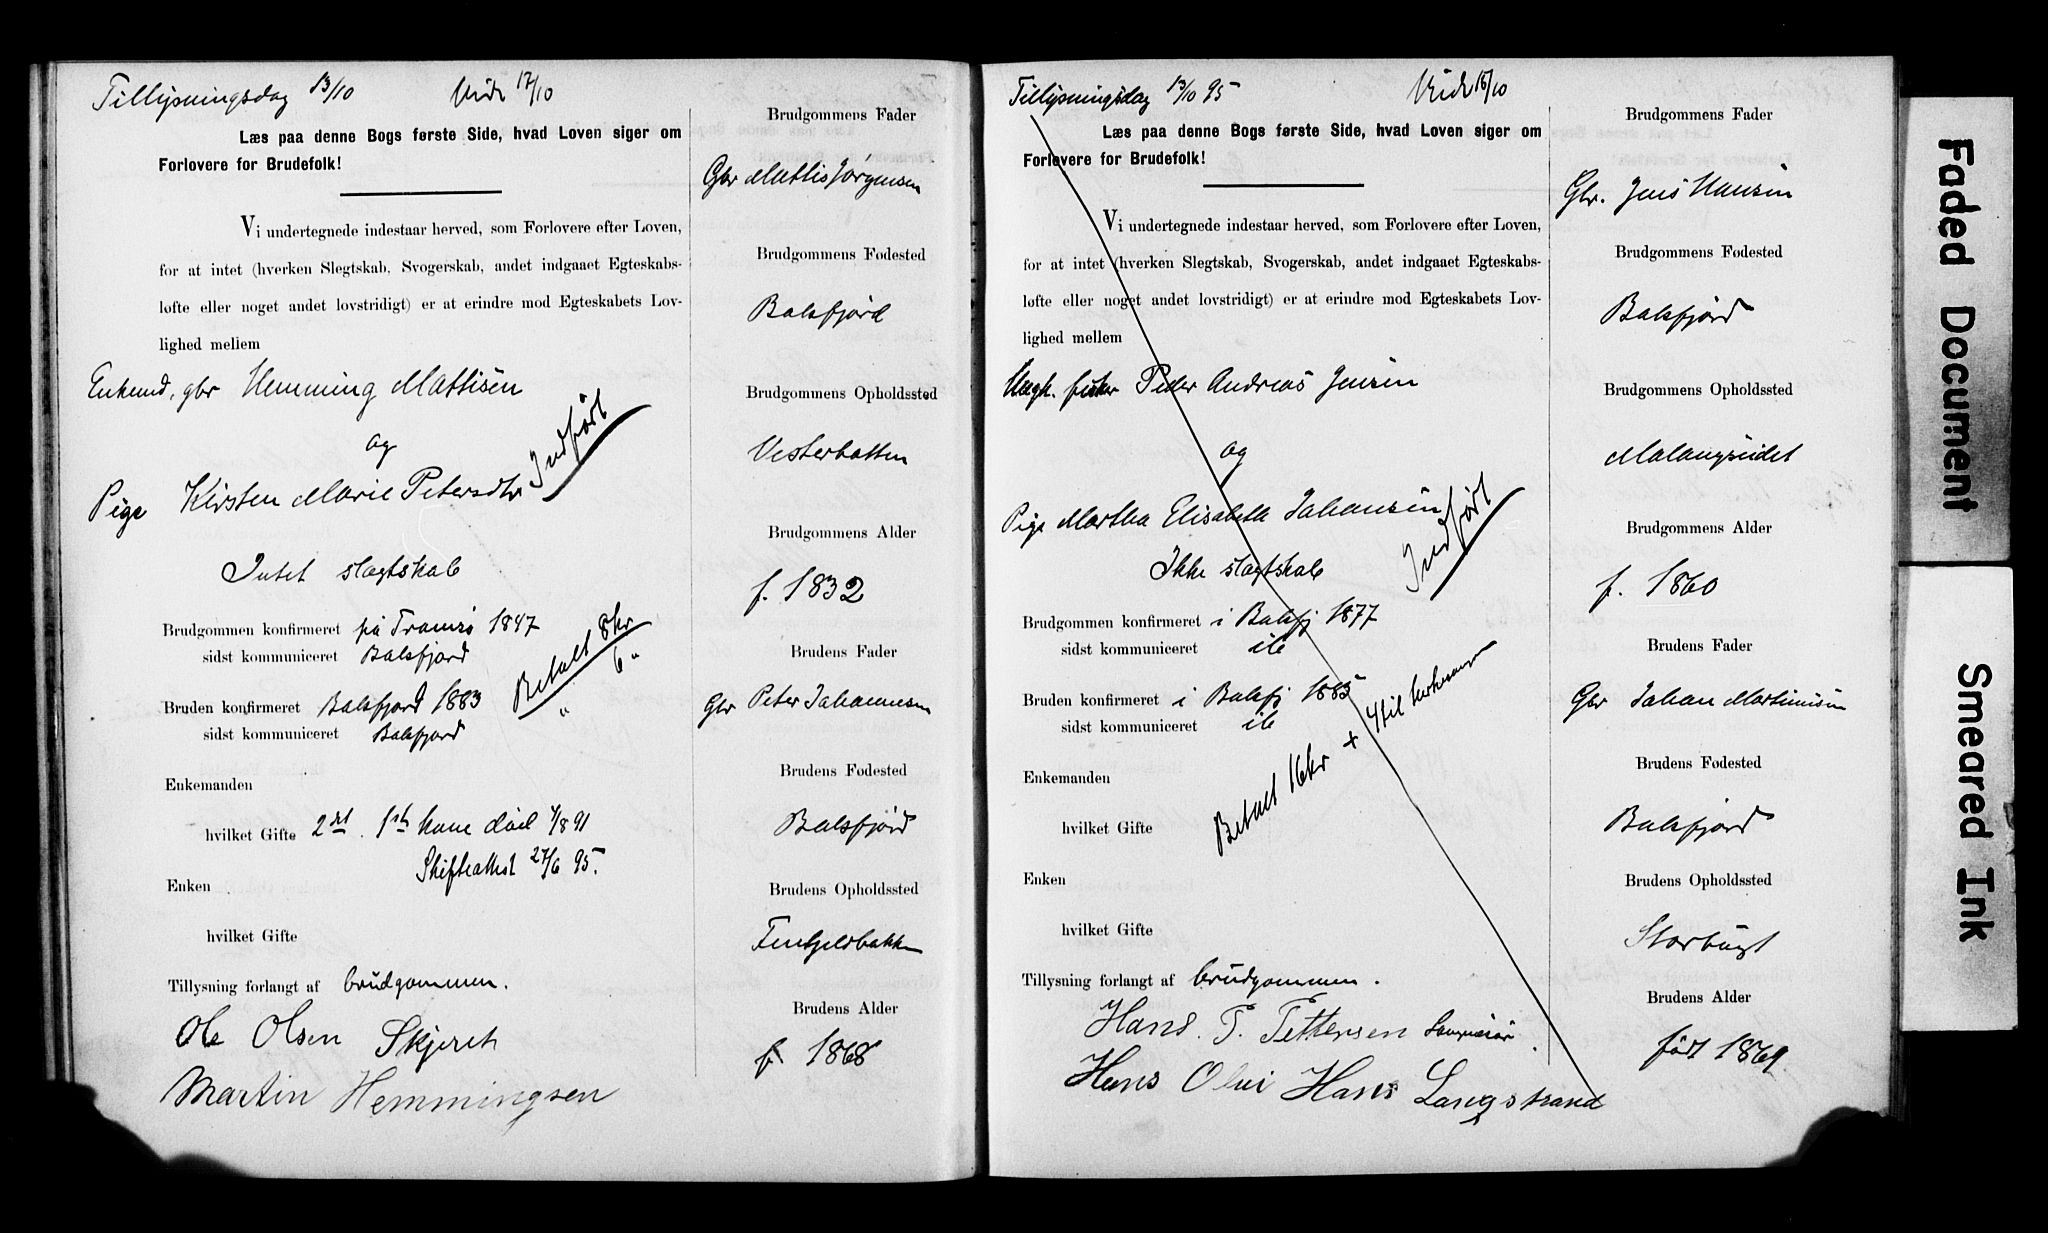 Tillysningsdag 13/10 Viede 17/10
Læs paa denne Bogs første Side, hvad Loven siger om
Forlovere for Brudefolk!
Vi undertegnede indestaar herved, som Forlovere efter Loven,
for at intet (hverken Slegtskab, Svogerskab, andet indgaaet Egteskabs-
løfte eller noget andet lovstridigt) er at erindre mod Egteskabets Lov-
lighed mellem
Enkemd, gbr Hemming Mattisen
og
Pige Kirsten Marie Petersdtr
Indført
Intet slægtskab
Brudgommen konfirmeret på Tromsø 1847
sidst kommuniceret Balsfjord
Bruden konfirmeret Balsfjord 1883
sidst kommuniceret Balsfjord
Betalt 8kr
" 6 "
Enkemanden
hvilket Gifte 2det. 1ste kone død 4/8 91
Skifteattest 27/6 95.
Enken
hvilket Gifte
Tillysning forlangt af brudgommen.
Ole Olsen Skjeret
Martin Hemmingsen
Brudgommens Fader
Gbr Mattis Jørgensen
Brudgommens Fødested
Balsfjord
Brudgommens Opholdssted
Vesterbotten
Brudgommens Alder
f. 1832
Brudens Fader
Gbr Peter Johannesen
Brudens Fødested
Balsfjord
Brudens Opholdssted
Brudens Alder
f. 1868
Tillysningsdag 13/10 95 Viede 16/10
Læs paa denne Bogs første Side, hvad Loven siger om
Forlovere for Brudefolk!
Vi undertegnede indestaar herved, som Forlovere efter Loven,
for at intet (hverken Slegtskab, Svogerskab, andet indgaaet Egteskabs-
løfte eller noget andet lovstridigt) er at erindre mod Egteskabets Lov-
lighed mellem
Ungk. fisker Peder Andreas Jensen
og
Pige Martha Elisabeth Johansen
Indført
Ikke slægtskab
Brudgommen konfirmeret i Balsfj 1877
sidst kommuniceret ib
Bruden konfirmeret i Balsfj 1885
sidst kommuniceret ib
Betalt 16kr + 4 til
Enkemanden
hvilket Gifte
Enken
hvilket Gifte
Tillysning forlangt af brudgommen.
Hans P. Pettersen
Hans Olai Hans Langstrand
Brudgommens Fader
Gbr. Jens Hansen
Brudgommens Fødested
Balsfjord
Brudgommens Opholdssted
Malangseidet
Brudgommens Alder
f. 1860
Brudens Fader
Gbr Johan Martinusen
Brudens Fødested
Balsfjord
Brudens Opholdssted
Storbugt
Brudens Alder
født 1869
Faded Document
Smeared Ink